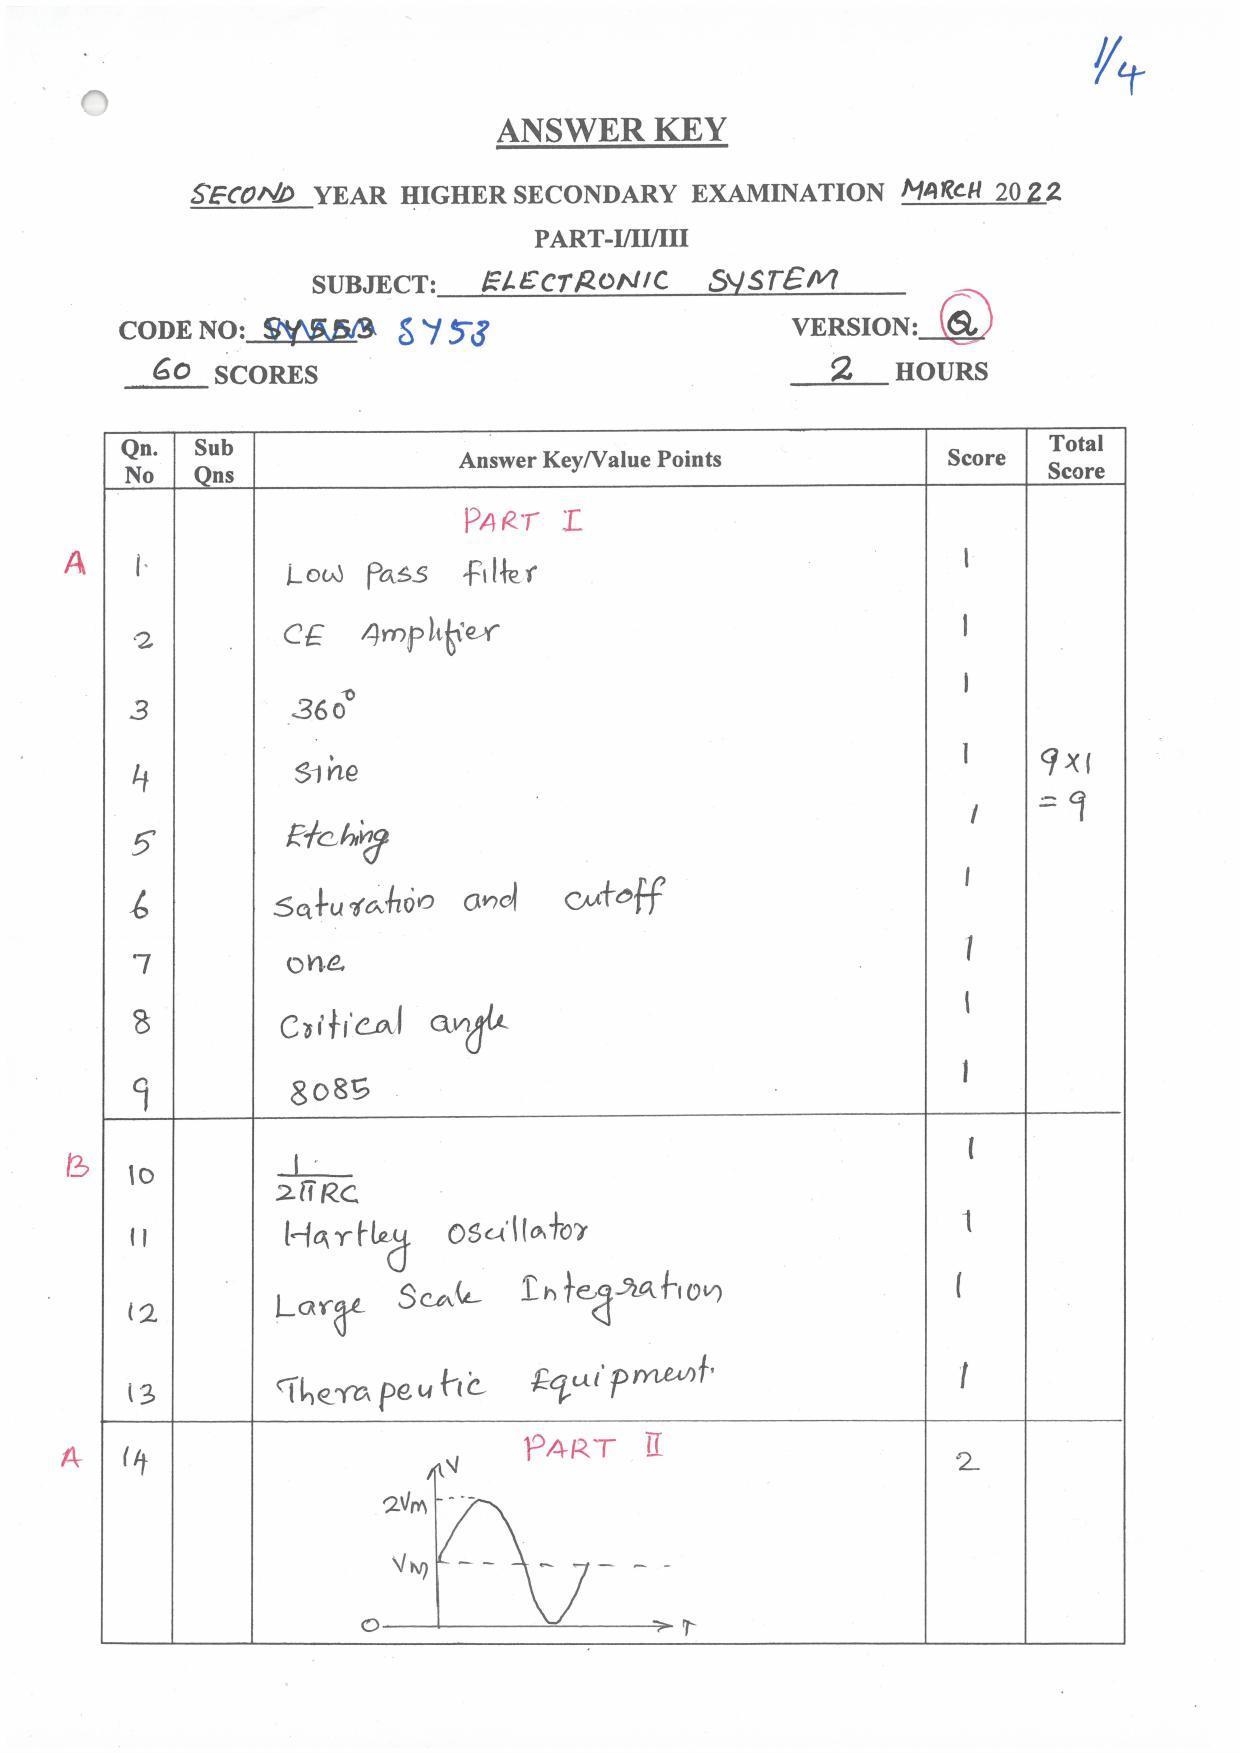 1/4
ANSWER KEY
SECOND YEAR HIGHER SECONDARY EXAMINATION MARCH 2022
PART-I/II/III
SUBJECT: ELECTRONIC SYSTEM
CODE NO: SY553 SY53 VERSION: Q
60 SCORES 2 HOURS
Qn. No Sub Qns Answer Key/Value Points Score Total Score
PART I
A 1. Low Pass filter 1
2 CE Amplifier 1
3 360° 1
4 Sine 1 9×1
= 9
5 Etching 1
6 Saturation and cutoff 1
7 one 1
8 Critical angle 1
9 8085 1
B 10 1/2πRC 1
11 Hartley Oscillator 1
12 Large Scale Integration 1
13 Therapeutic Equipment. 1
PART II
A 14 2
V
2Vm
Vm
0 T